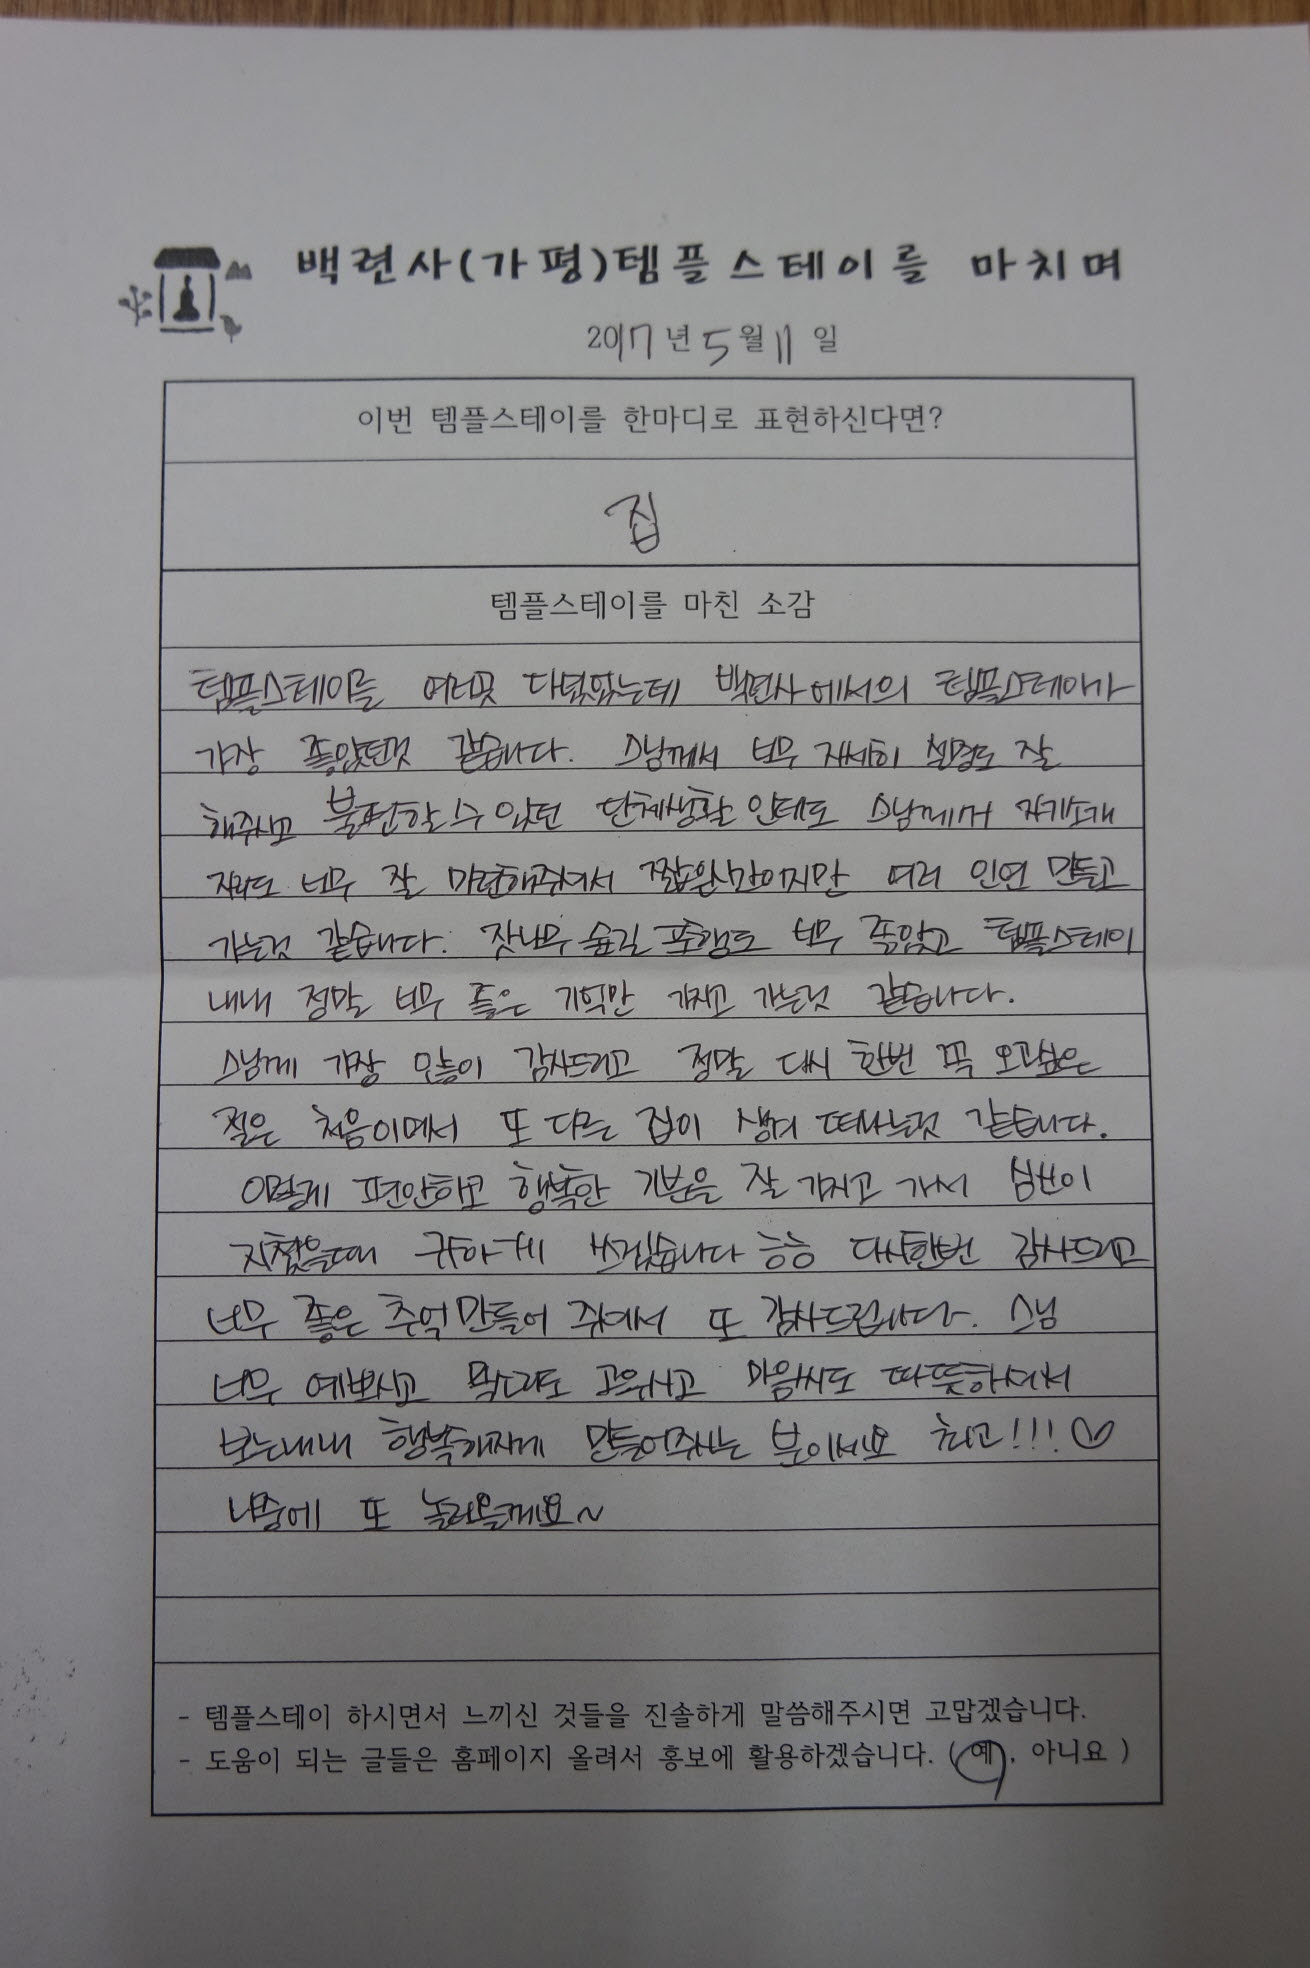 백련사(가평)템플스테이를 마치며
2017년 5월 11일
이번 템플스테이를 한마디로 표현하신다면?
집
템플스테이를 마친 소감
템플스테이를 여러곳 다녔었는데 백련사에서의 템플스테이가
가장 좋았던것 같습니다. 스님께서 너무 자세히 설명도 잘
해주시고 불편할 수 있던 단체생활인데도 스님께서 자기소개
자리도 너무 잘 마련해주셔서 짧은시간이지만 여러 인연 만들고
가는것 같습니다. 잣나무 숲길 포행도 너무 좋았고 템플스테이
내내 정말 너무 좋은 기억만 가지고 가는것 같습니다.
스님께 가장 많이 감사드리고 정말 다시 한번 꼭 오고싶은
절은 처음이며서 또 다른 집이 생겨 떠나는것 같습니다.
이렇게 편안하고 행복한 기분을 잘 가지고 가서 심신이
지쳤을때 귀하게 쓰겠습니다 ㅎㅎ 다시한번 감사드리고
너무 좋은 추억만들어 주셔서 또 감사드립니다. 스님
너무 예쁘시고 목소리도 고우시고 마음씨도 따뜻하셔서
보는내내 행복해지게 만들어주시는 분이세요 최고!!! ♡
나중에 또 놀러올게요~
- 템플스테이 하시면서 느끼신 것들을 진솔하게 말씀해주시면 고맙겠습니다.
- 도움이 되는 글들은 홈페이지 올려서 홍보에 활용하겠습니다. (예, 아니요 )